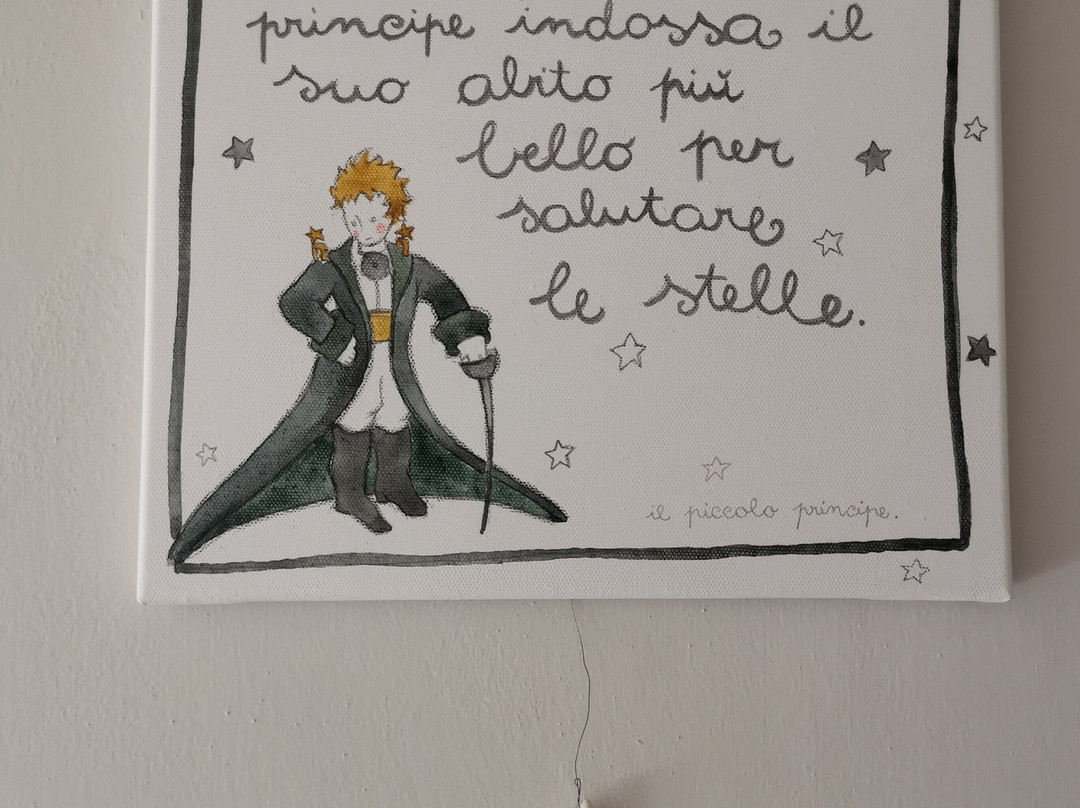 principe indossa il
suo abito più
bello per
salutare
le stelle.
il piccolo principe.